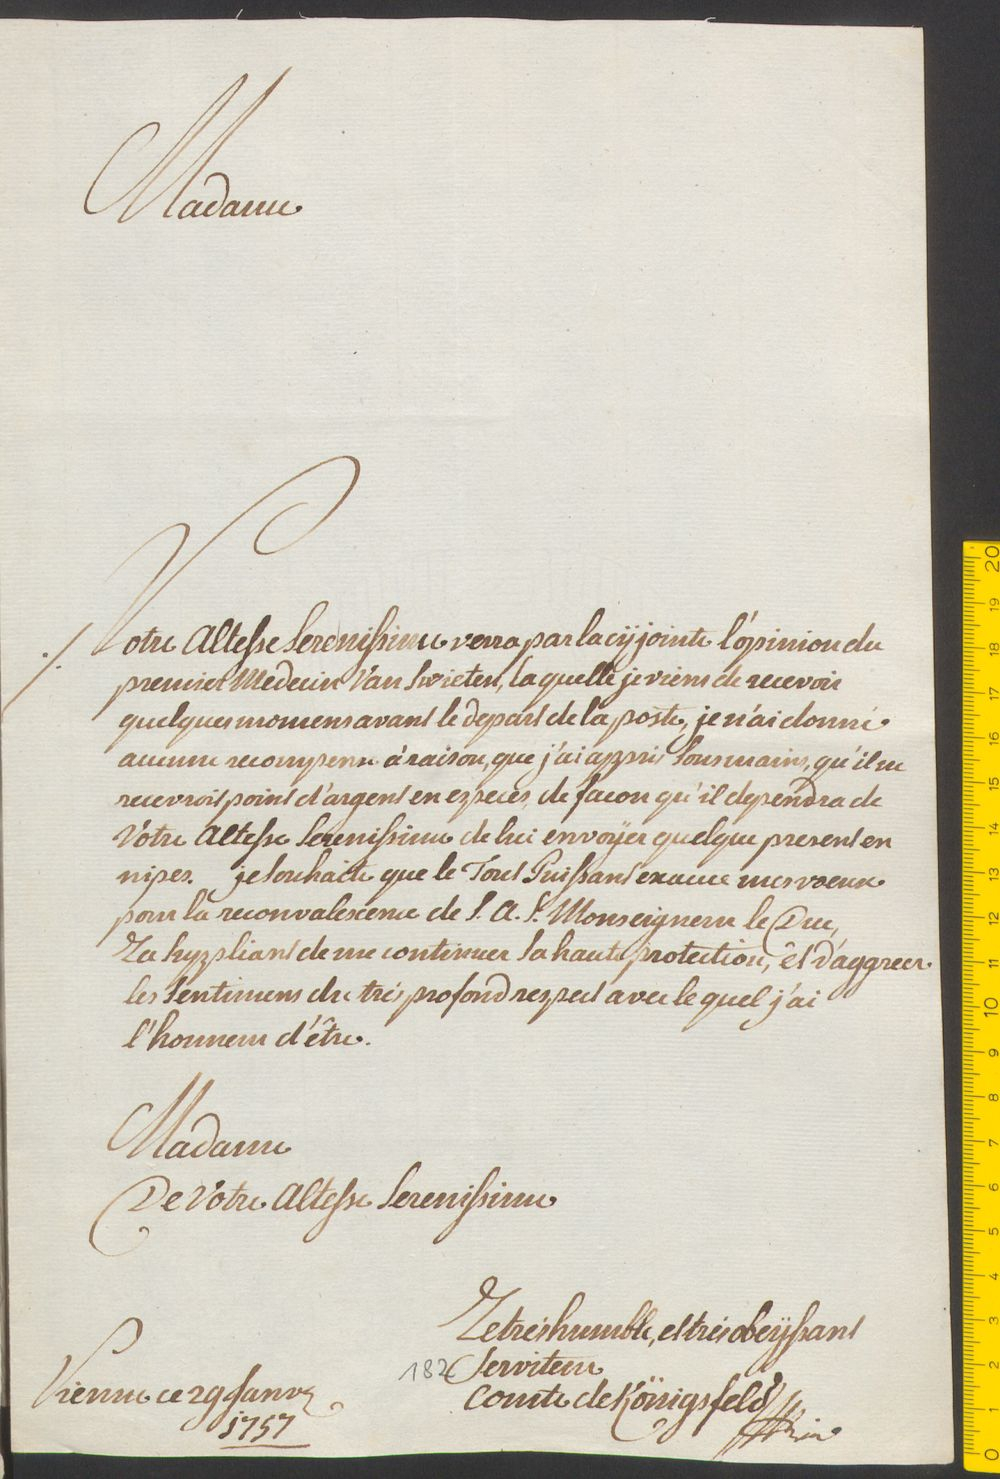 Madame
Votre Altesse Serenissime verra par la cy jointe l'opinion du
premier Medecin Van Swieten, la quelle je viens de recevoir
quelques momens avant le depart de la poste, je n'ai donné
aucune recompense à raison, que j'ai appris sous main, qu'il ne
recevroit point d'argent en especes, de façon qu'il dependra de
Votre Altesse Serenissime de lui envoÿer quelque present en
nipes. je souhaite que le Tout Puissant exauce mes vœux
pour la reconvalescence de S. A. S. Monseigneur le Duc,
La suppliant de me continuer sa haute protection, et d'aggreer
les sentimens du très profond respect avec le quel j'ai
l'honneur d'être.
Madame
De Votre Altesse Serenissime
Le très humble, et très obeÿssant
182 Serviteur
Vienne ce 29 Janv.
Comte de Königsfeld
1757
0 1 2 3 4 5 6 7 8 9 10 11 12 13 14 15 16 17 18 19 20